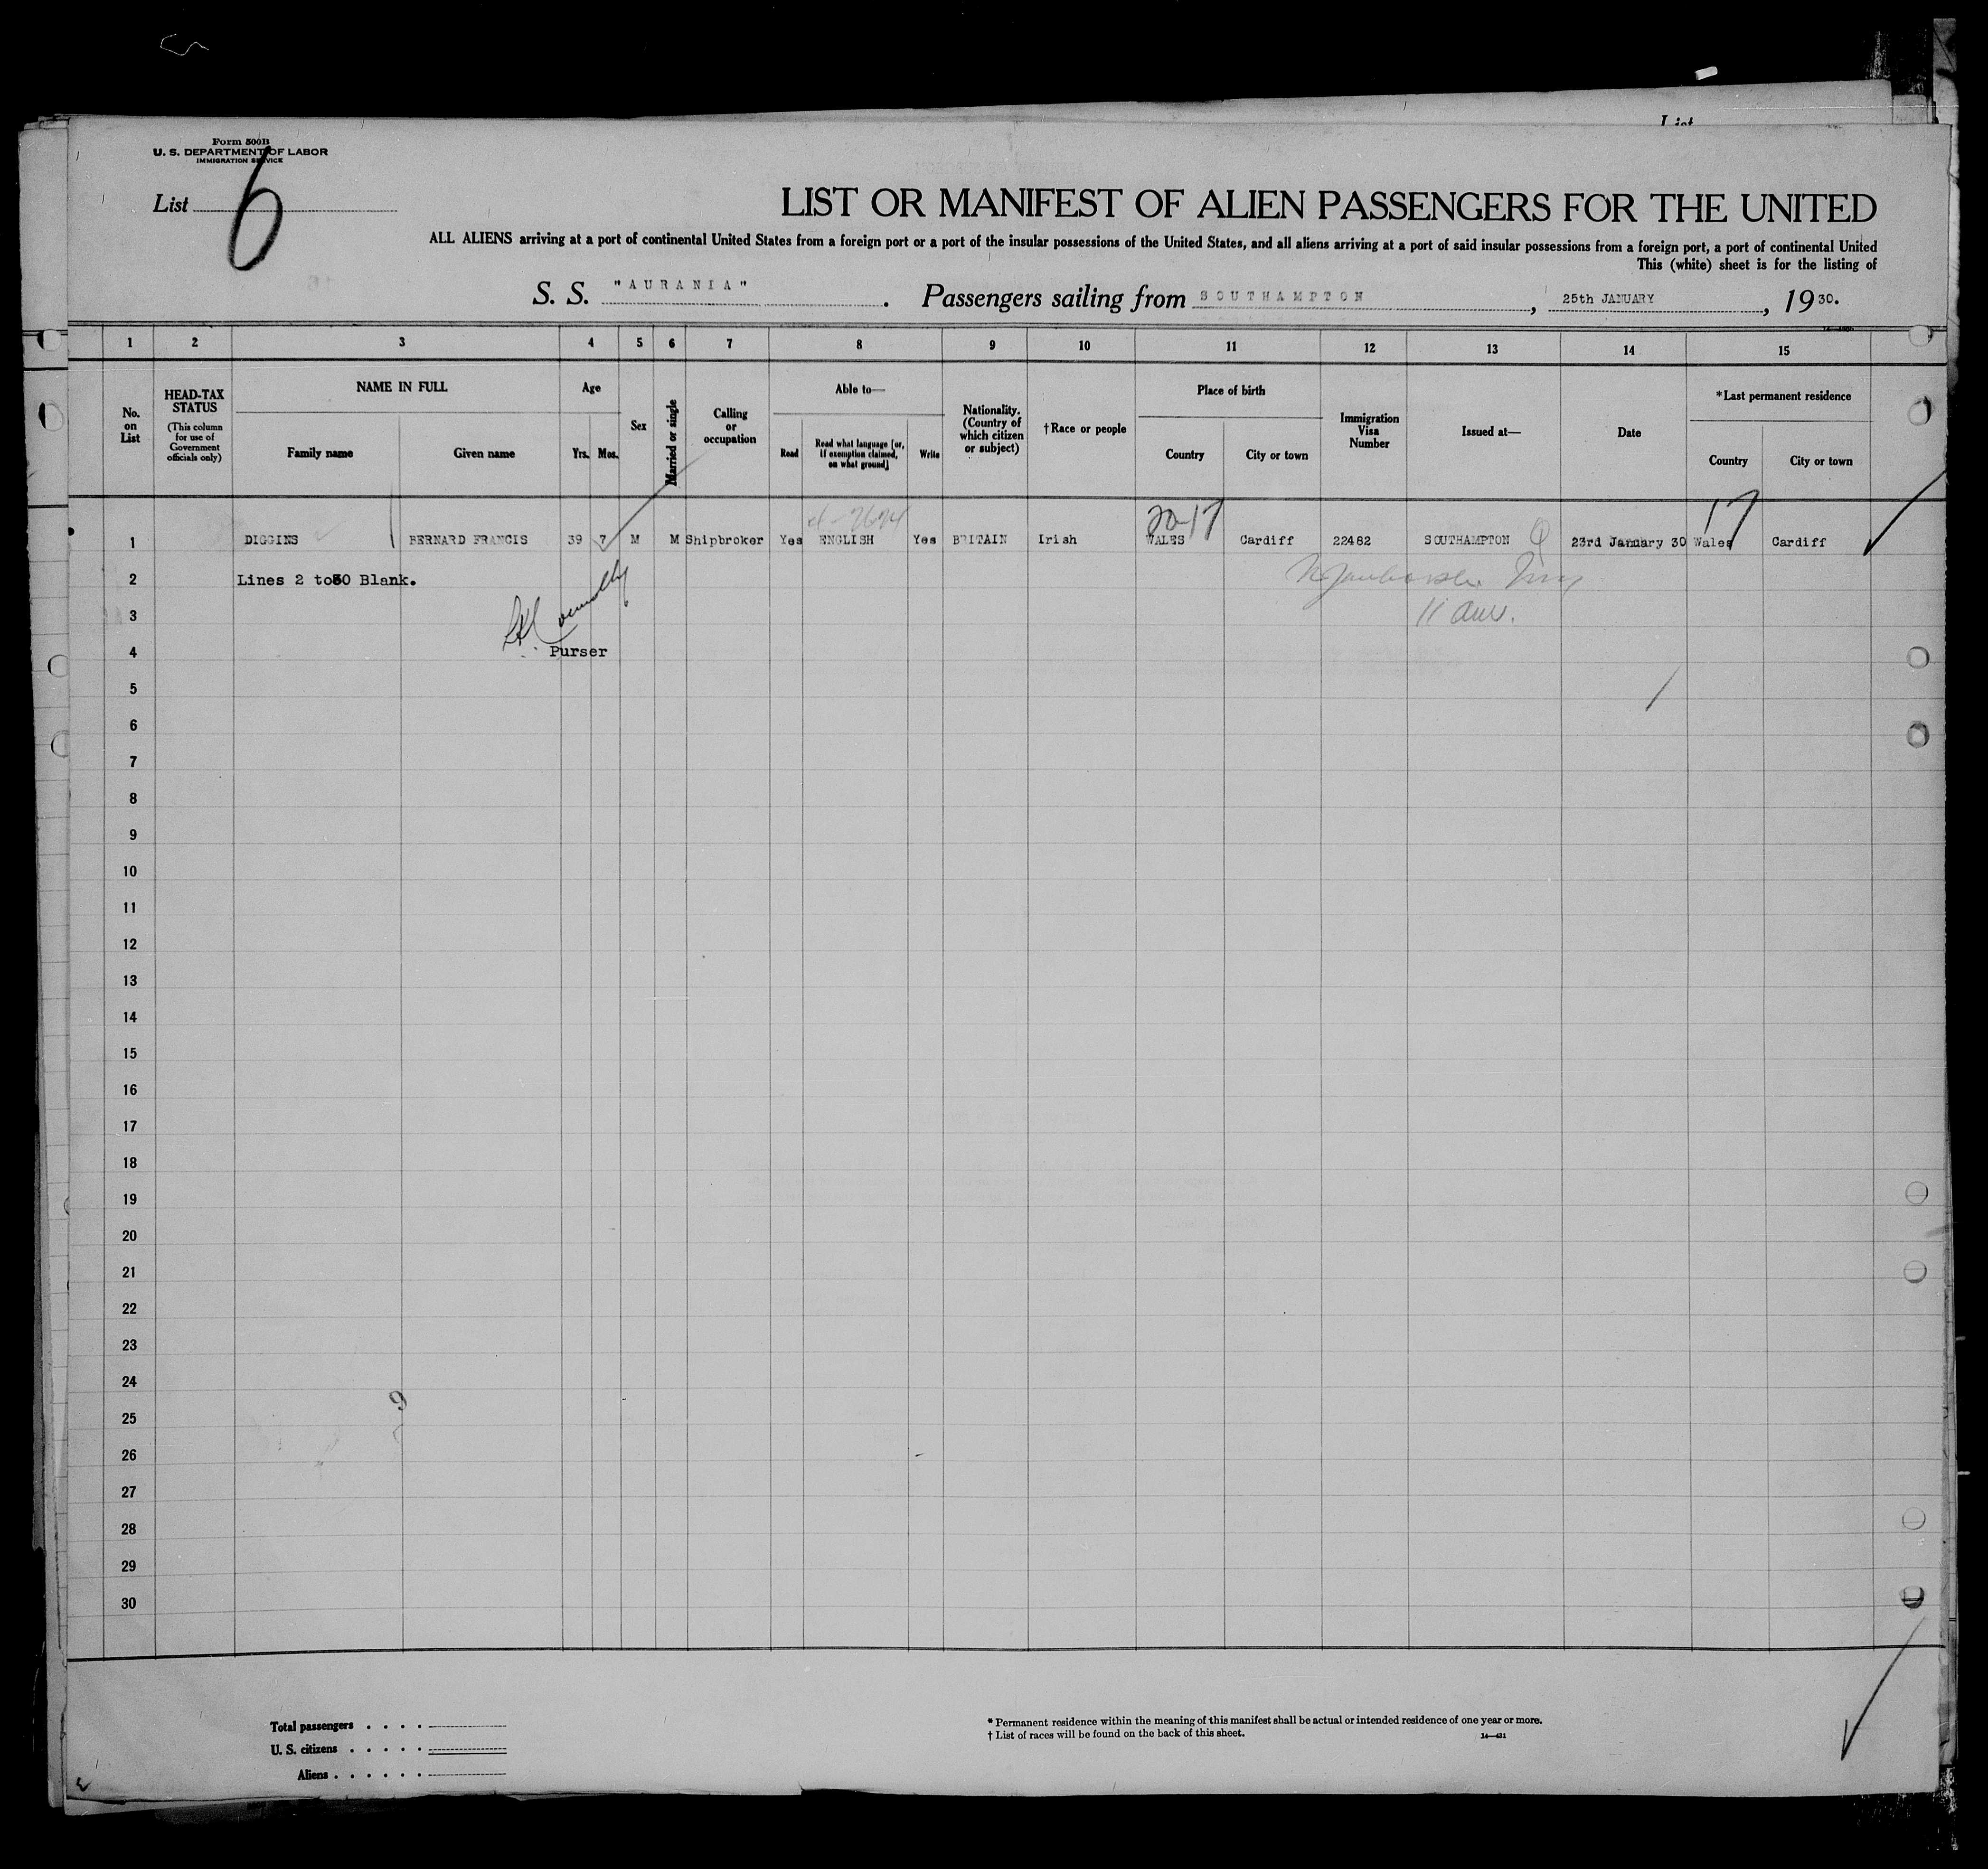 List
Form 500B
U. S. DEPARTMENT OF LABOR
IMMIGRATION SERVICE
List 6
LIST OR MANIFEST OF ALIEN PASSENGERS FOR THE UNITED
ALL ALIENS arriving at a port of continental United States from a foreign port or a port of the insular possessions of the United States, and all aliens arriving at a port of said insular possessions from a foreign port, a port of continental United
This (white) sheet is for the listing of
S. S. "AURANIA". Passengers sailing from SOUTHAMPTON, 25th JANUARY, 1930.
1 2 3 4 5 6 7 8 9 10 11 12 13 14 15
No. on List
HEAD-TAX STATUS
(This column for use of Government officials only)
NAME IN FULL
Family name
Given name
Age
Yrs. Mos.
Sex
Married or single
Calling or occupation
Able to—
Read
Read what language [or, if exemption claimed, on what ground]
Write
Nationality. (Country of which citizen or subject)
†Race or people
Place of birth
Country
City or town
Immigration Visa Number
Issued at—
Date
*Last permanent residence
Country
City or town
20-17 17
1 DIGGINS BERNARD FRANCIS 39 7 M M Shipbroker Yes ENGLISH Yes BRITAIN Irish WALES Cardiff 22482 SOUTHAMPTON 23rd January 30 Wales Cardiff
2 Lines 2 to 30 Blank.
3
4 Purser
5
6
7
8
9
10
11
12
13
14
15
16
17
18
19
20
21
22
23
24
25
26
27
28
29
30
Total passengers . . . .
U. S. citizens . . . . .
Aliens . . . . . .
* Permanent residence within the meaning of this manifest shall be actual or intended residence of one year or more.
† List of races will be found on the back of this sheet.
14—431